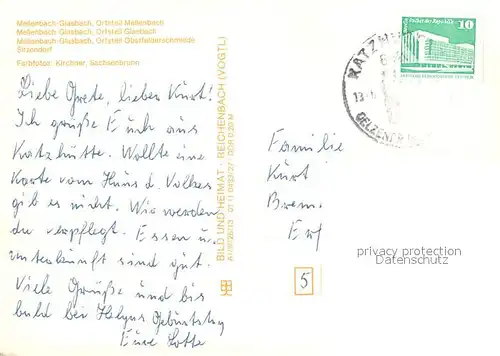 Mellenbach-Glasbach, Ortsteil Mellenbach
Mellenbach-Glasbach, Ortsteil Glasbach
Mellenbach-Glasbach, Ortsteil Obstfelderschmiede
Sitzendorf
Farbfotos: Kirchner, Sachsenbrunn
Liebe Grete, lieber Kurt!
Ich grüße Euch aus
Katzhütte. Wollte eine
Karte vom Haus d. Volkes
gib es nicht. Wir werden
da verpflegt. Essen u.
Unterkunft sind gut.
Viele Grüße und bis
bald bei Helgas Geburtstag
Eure Lotte
BILD UND HEIMAT · REICHENBACH (VOGTL)
DDR 0,20 M
10
KATZH
13-
Familie
Kurt
Brem
Erf
privacy protection
Datenschutz
5